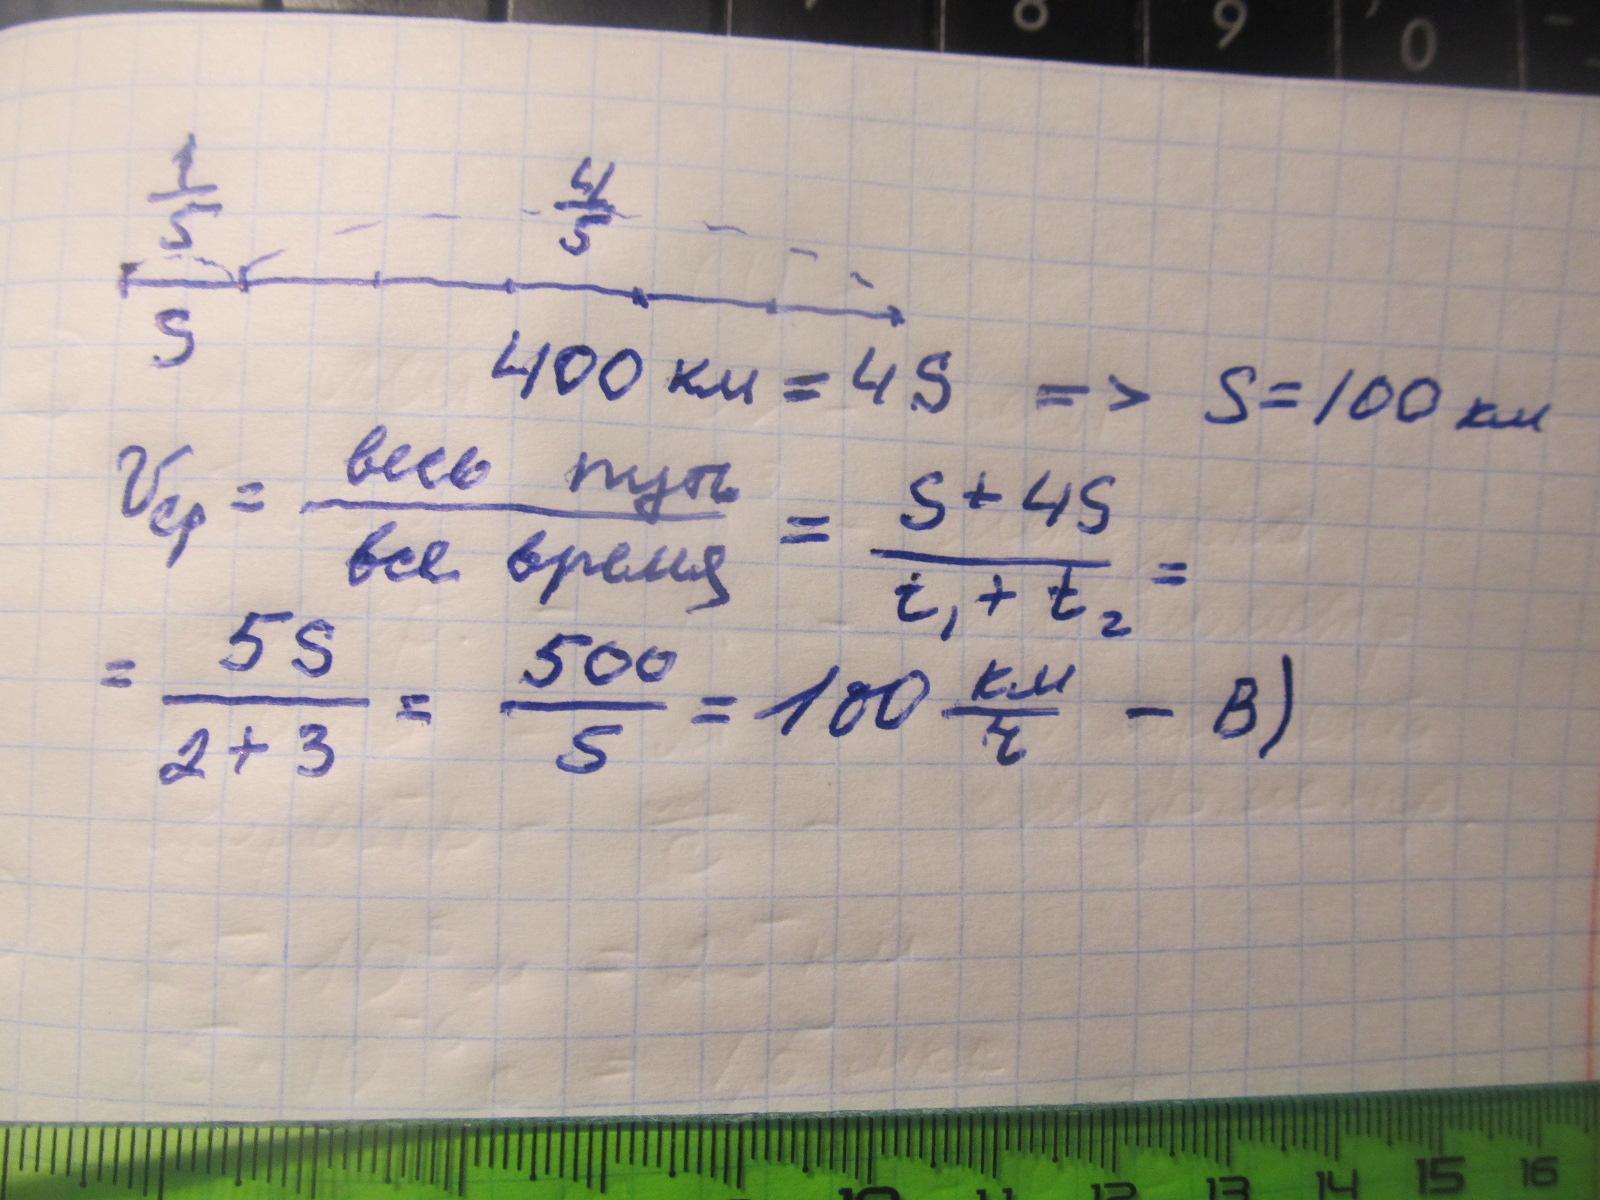 8 9 0 -
1/5 4/5
S
400 км = 4S => S = 100 км
Vср = весь путь / все время = S + 4S / t₁ + t₂ =
= 5S / 2 + 3 = 500 / 5 = 100 км/ч - В)
10 11 12 13 14 15 16